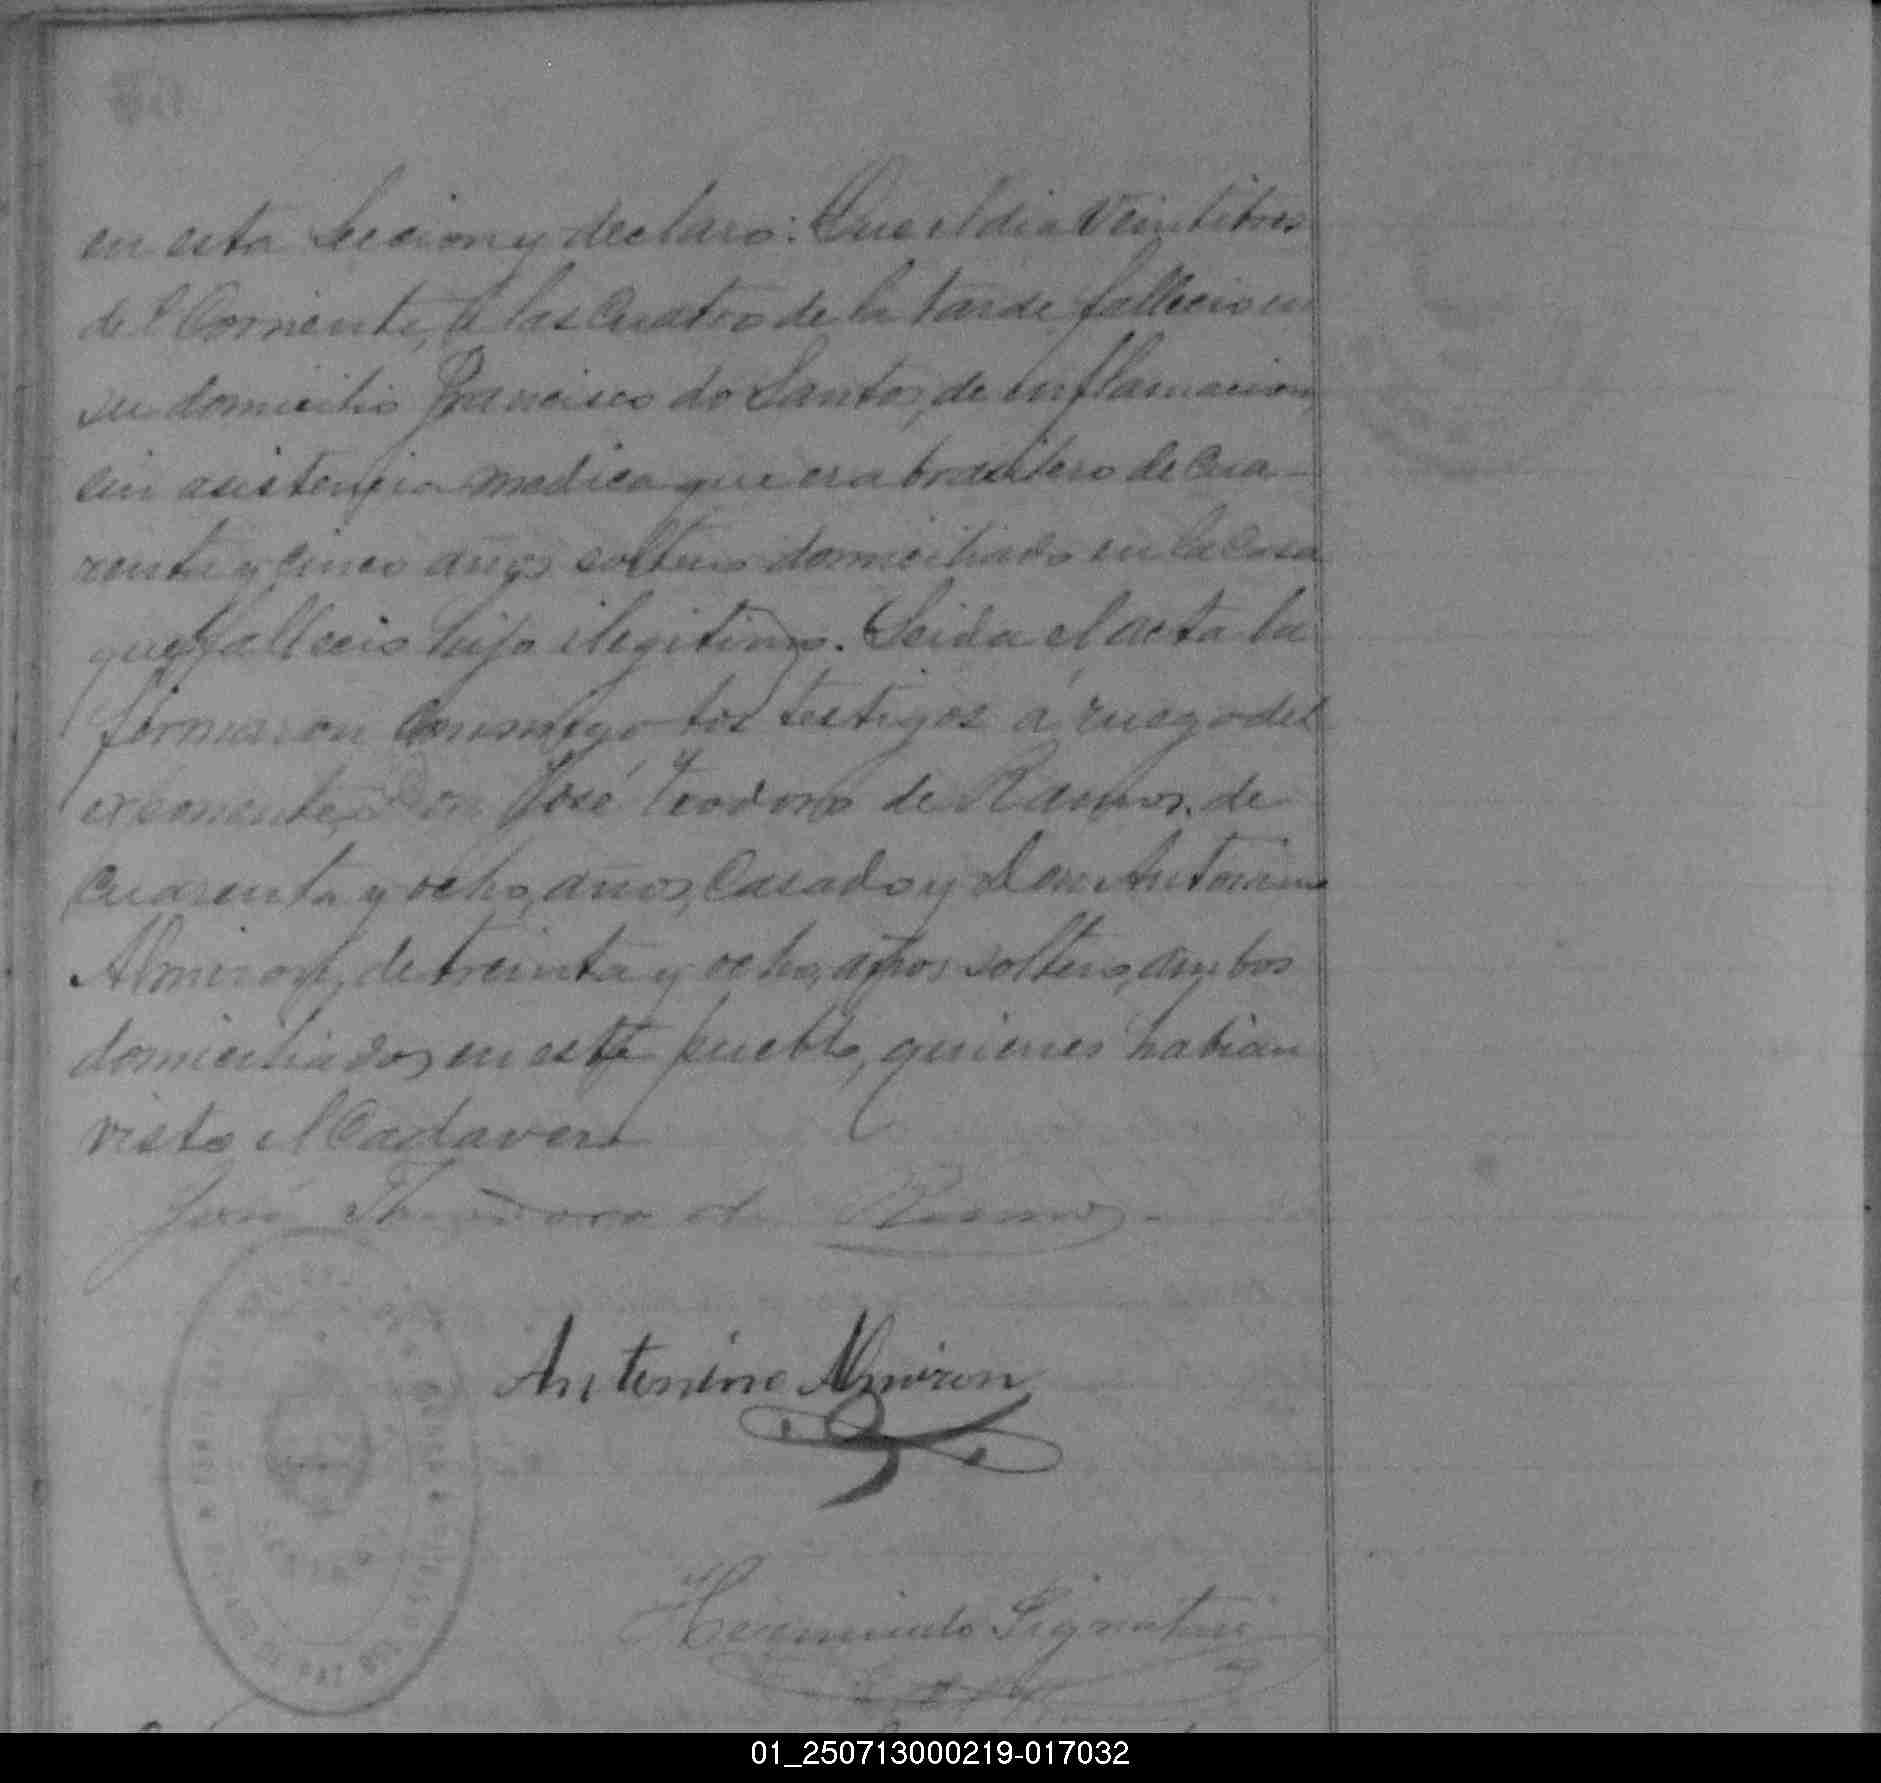 en esta Seccion y declaro: Que el dia Veintitres
del Corriente, á las Cuatro de la tarde fallecio en
su domicilio Francisco do Santos, de inflamacion,
sin asistencia medica que era brasilero de Cua-
renta y cinco años soltero domiciliado en la Casa
que fallecio hijo ilegitimo. Leida el acta la
firmaron Conmigo los testigos á ruego del
exponente, Don José Teodoro de Ramos, de
Cuarenta y ocho, años, Casado y Don Antonino
Almiron, de treinta y ocho, años soltero, ambos
domiciliados en este pueblo, quienes habian
visto el Cadaver.
José Theodoro de Ramos
Antonino Almiron
01_250713000219-017032